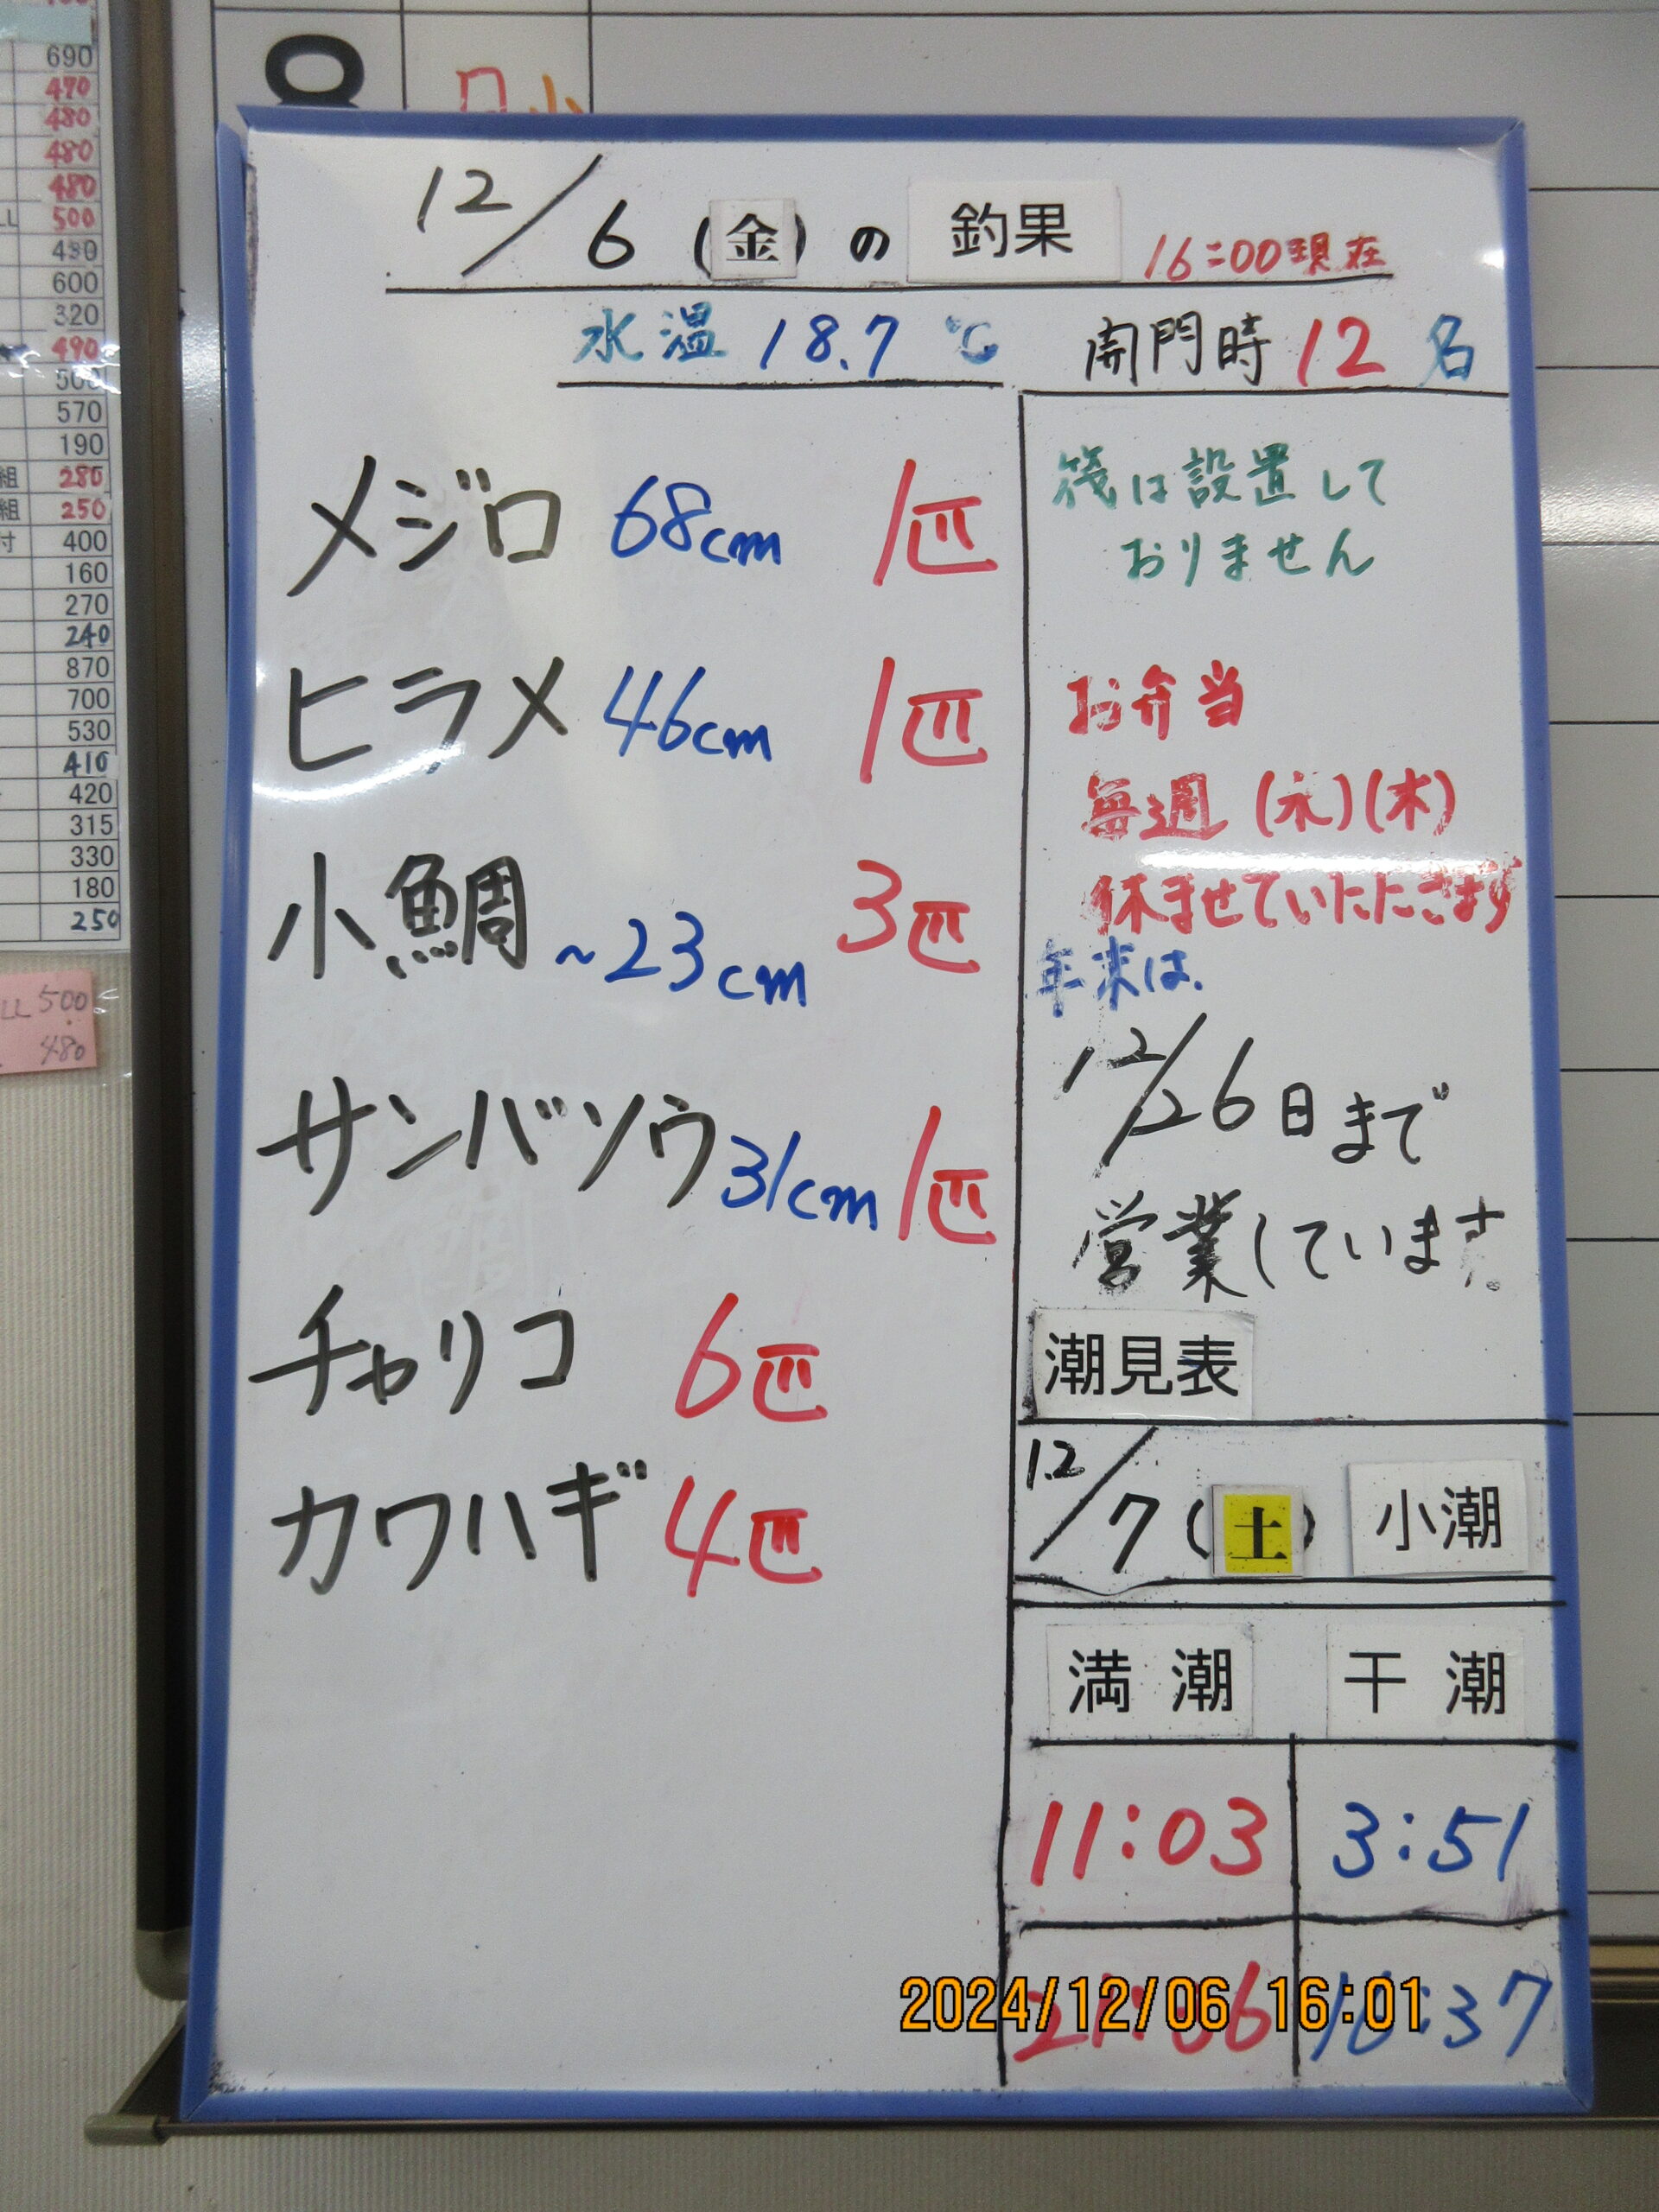 690
470
480
480
480
LL 500
430
600
320
490
500
570
190
組 280
組 250
付 400
160
270
240
870
700
530
410
420
315
330
180
250
LL 500
480
8
日 小
12/6 (金) の 釣果 16:00現在
水温 18.7 ℃ 開門時 12 名
メジロ 68cm 1匹
ヒラメ 46cm 1匹
小鯛 ~23cm 3匹
サンバソウ 31cm 1匹
チャリコ 6匹
カワハギ 4匹
筏は設置して
おりません
お弁当
毎週 (水)(木)
休ませていただきます
年末は、
12/26日まで
営業しています。
潮見表
12/7 (土) 小潮
満潮 干潮
11:03 3:51
:37
2024/12/06 16:01